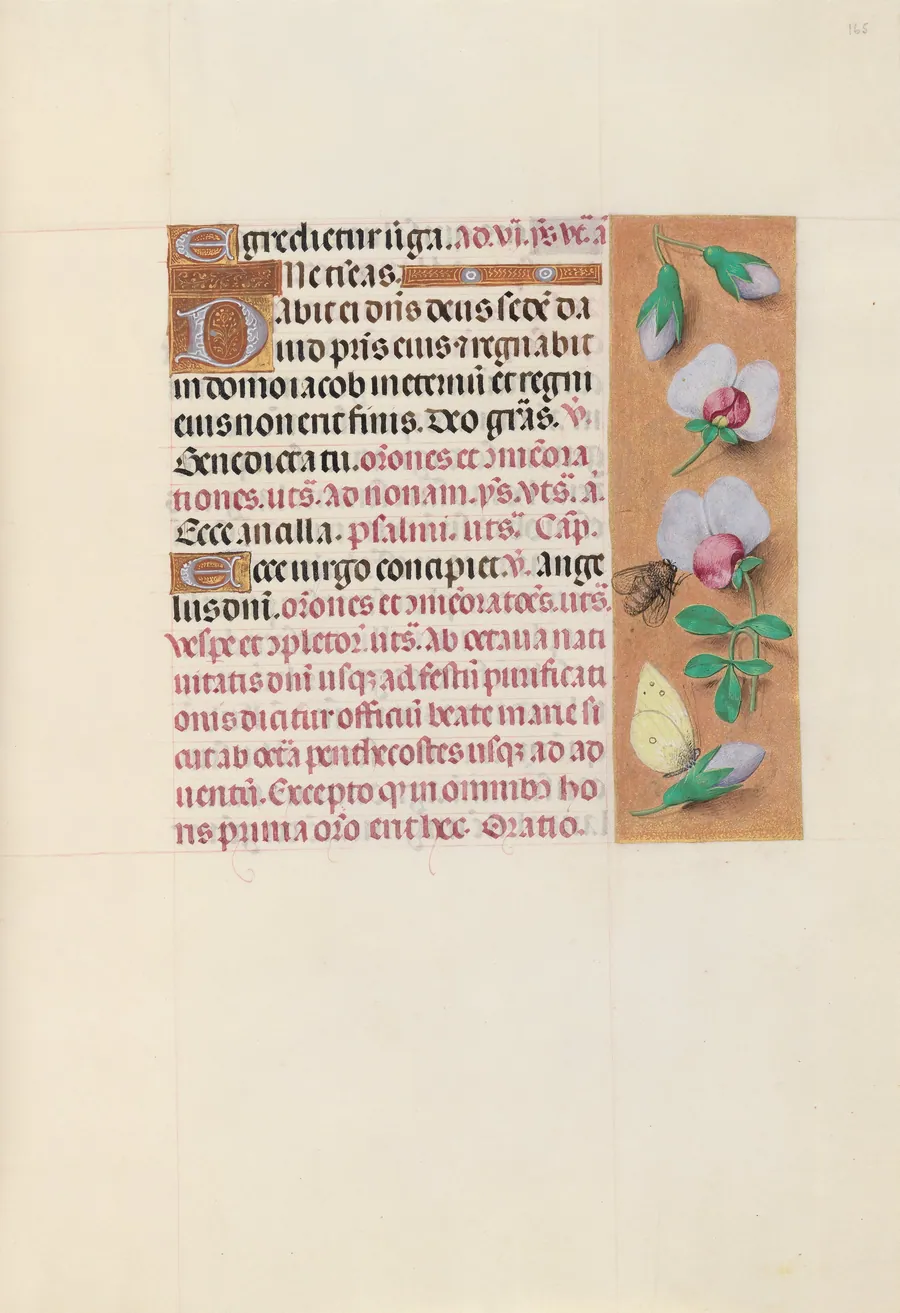 165
Egredietur uirga. Ad. vi. ps. vt. a
Ne timeas.
Dabit ei dñs deus sedē da
uid pr̄is eius ⁊ regnabit
in domo iacob in eternū et regni
eius non erit finis. Deo gr̄as. v̄.
Benedicta tu. or̄ones et ɔmēora
tiones. uts̄. Ad nonam. ps̄. vts̄. a.
Ecce ancilla. psalmi. uts̄. Cap̄.
Ecce uirgo concipiet. v̄. Ange
lus dn̄i. or̄ones et ɔmēoratōēs. uts̄.
vesp̄e et ɔpletor̄. uts̄. Ab octaua nati
uitatis dn̄i usqꝫ ad festū purificati
onis dicitur officiū beate marie si
cut ab octā penthecostes usqꝫ ad ad
uentū. Excepto qꝫ in omnibꝫ ho
ris prima or̄o erit hec. Oratio.